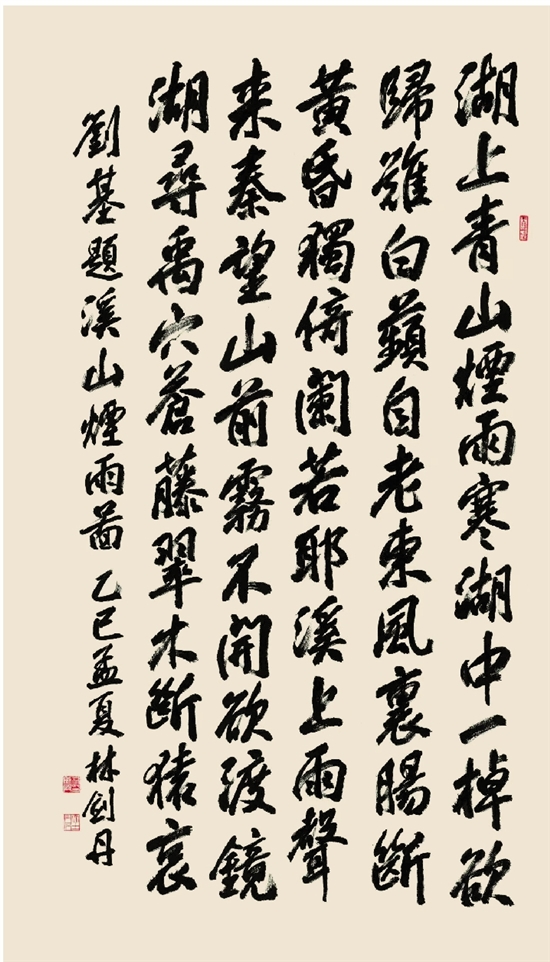 湖上青山煙雨寒湖中一棹欲
歸難白蘋自老東風裏腸斷
黃昏獨倚闌若耶溪上雨聲
来秦望山前霧不開欲渡鏡
湖尋禹穴蒼藤翠木斷猿哀
劉基題溪山煙雨啚 乙巳孟夏林剑丹